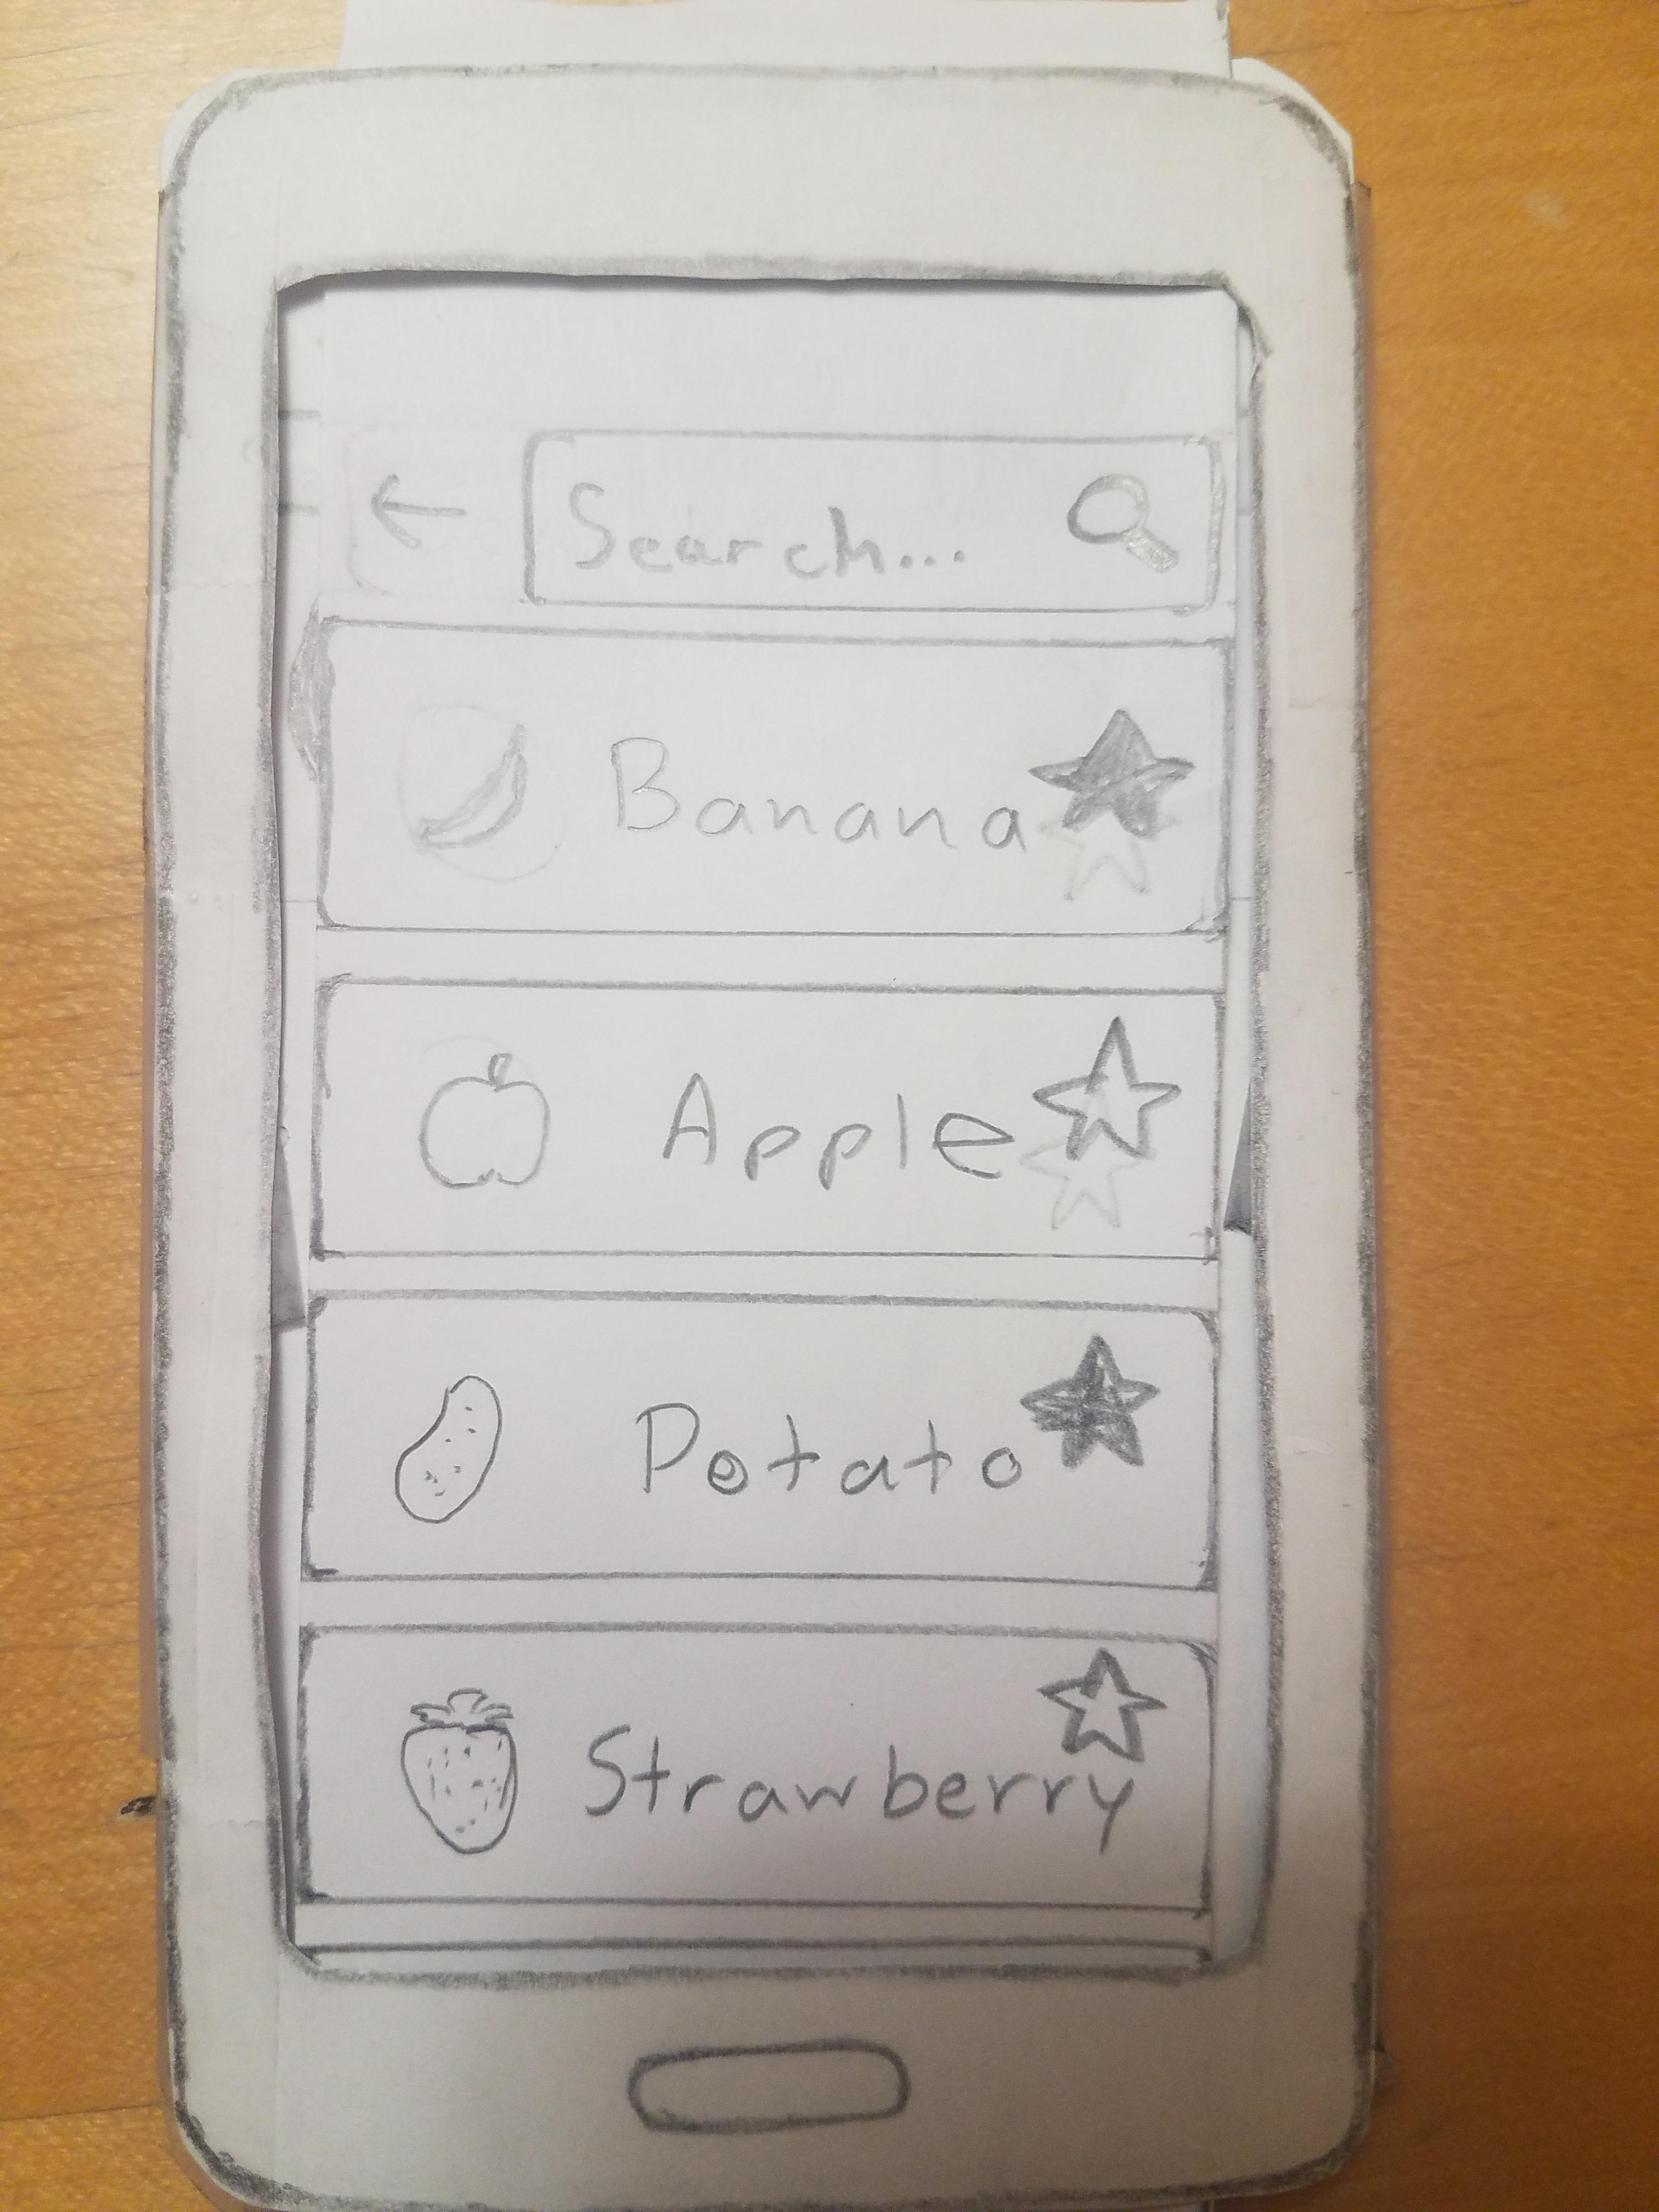 Search...
Banana
Apple
Potato
Strawberry